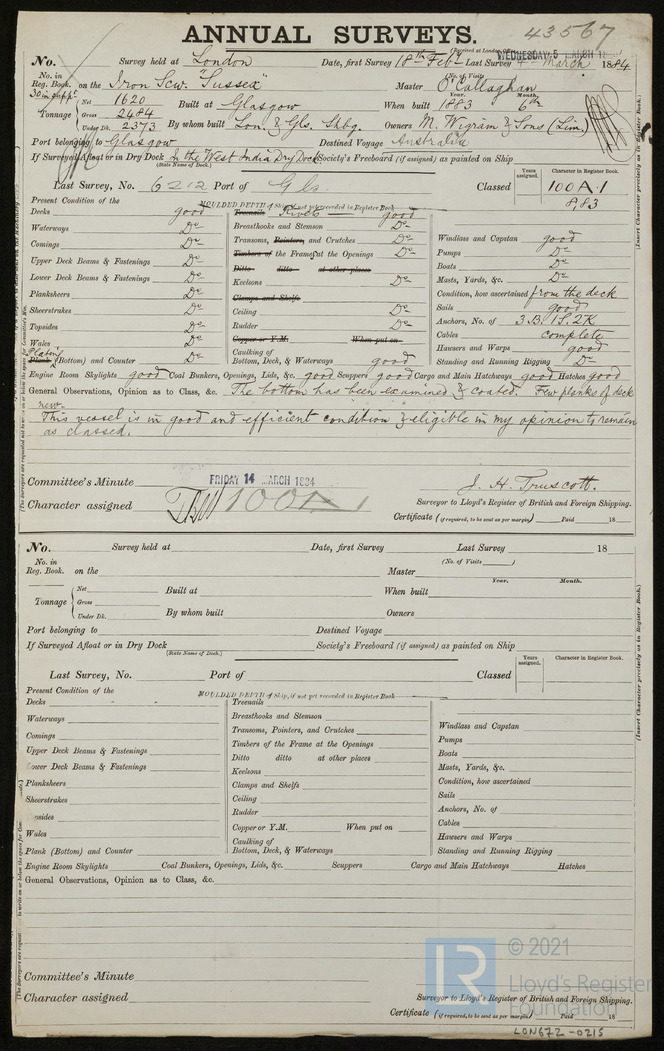 ANNUAL SURVEYS.
43567
(Received at London Office
WEDNESDAY 5 MARCH 18
No. Survey held at London Date, first Survey 18th Feby Last Survey March 1884
No. in Reg. Book. on the Iron Scw. "Sussex" (No. of Visits) Master O'Callaghan
30 in suppt
Tonnage Net 1620 Built at Glasgow When built Year. 1883 Month. 6th
Gross 2484
Under Dk. 2373 By whom built Lon. & Gls. Shbg. Owners M. Wigram & Sons (Lim.)
Port belonging to Glasgow Destined Voyage Australia
If Surveyed Afloat or in Dry Dock In the West India Dry Dock Society's Freeboard (if assigned) as painted on Ship
(State Name of Dock.)
Last Survey, No. 6212 Port of Gls. Classed Years assigned. Character in Register Book. 100A.1
8,83
Present Condition of the MOULDED DEPTH of Ship, if not yet recorded in Register Book
Decks good Treenails Rivets good
Waterways Do Breasthooks and Stemson Do
Comings Do Transoms, Pointers, and Crutches Do Windlass and Capstan good
Upper Deck Beams & Fastenings Do Timbers of the Frame at the Openings Do Pumps Do
Ditto ditto at other places Boats Do
Lower Deck Beams & Fastenings Do Keelsons Do Masts, Yards, &c. Do
Planksheers Do Clamps and Shelfs Condition, how ascertained from the deck
Sheerstrakes Do Ceiling Do Sails good
Topsides Do Rudder Do Anchors, No. of 3.B. 1S. 2K
Wales Do Copper or Y.M. When put on Cables complete
Plating Plank (Bottom) and Counter Do Caulking of Bottom, Deck, & Waterways good Hawsers and Warps good
Standing and Running Rigging Do
Engine Room Skylights good Coal Bunkers, Openings, Lids, &c. good Scuppers good Cargo and Main Hatchways good Hatches good
General Observations, Opinion as to Class, &c. The bottom has been examined & coated. Few planks of deck
new.
This vessel is in good and efficient condition & eligible in my opinion to remain
as classed.
Committee's Minute FRIDAY 14 MARCH 1884 J. H. Truscott.
Character assigned 100A1 Surveyor to Lloyd's Register of British and Foreign Shipping.
Certificate (if required, to be sent as per margin) Paid 18
No. Survey held at Date, first Survey Last Survey 18
No. in Reg. Book. on the (No. of Visits) Master
Tonnage Net Built at When built Year. Month.
Gross
Under Dk. By whom built Owners
Port belonging to Destined Voyage
If Surveyed Afloat or in Dry Dock Society's Freeboard (if assigned) as painted on Ship
(State Name of Dock.)
Last Survey, No. Port of Classed Years assigned. Character in Register Book.
Present Condition of the MOULDED DEPTH of Ship, if not yet recorded in Register Book
Decks Treenails
Waterways Breasthooks and Stemson
Comings Transoms, Pointers, and Crutches Windlass and Capstan
Upper Deck Beams & Fastenings Timbers of the Frame at the Openings Pumps
Ditto ditto at other places Boats
Lower Deck Beams & Fastenings Keelsons Masts, Yards, &c.
Planksheers Clamps and Shelfs Condition, how ascertained
Sheerstrakes Ceiling Sails
Topsides Rudder Anchors, No. of
Wales Copper or Y.M. When put on Cables
Plank (Bottom) and Counter Caulking of Bottom, Deck, & Waterways Hawsers and Warps
Standing and Running Rigging
Engine Room Skylights Coal Bunkers, Openings, Lids, &c. Scuppers Cargo and Main Hatchways Hatches
General Observations, Opinion as to Class, &c.
Committee's Minute
Character assigned Surveyor to Lloyd's Register of British and Foreign Shipping.
Certificate (if required, to be sent as per margin) Paid 18
(Insert Character precisely as in Register Book.)
(Insert Character precisely as in Register Book.)
LR © 2021
Lloyd's Register
Foundation
LON672-0215